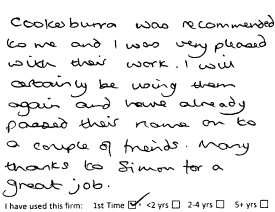 Cookerburra was recommended
to me and I was very pleased
with their work. I will
certainly be using them
again and have already
passed their name on to
a couple of friends. Many
thanks to Simon for a
great job.
I have used this firm: 1st Time ☑ <2 yrs ☐ 2-4 yrs ☐ 5+ yrs ☐